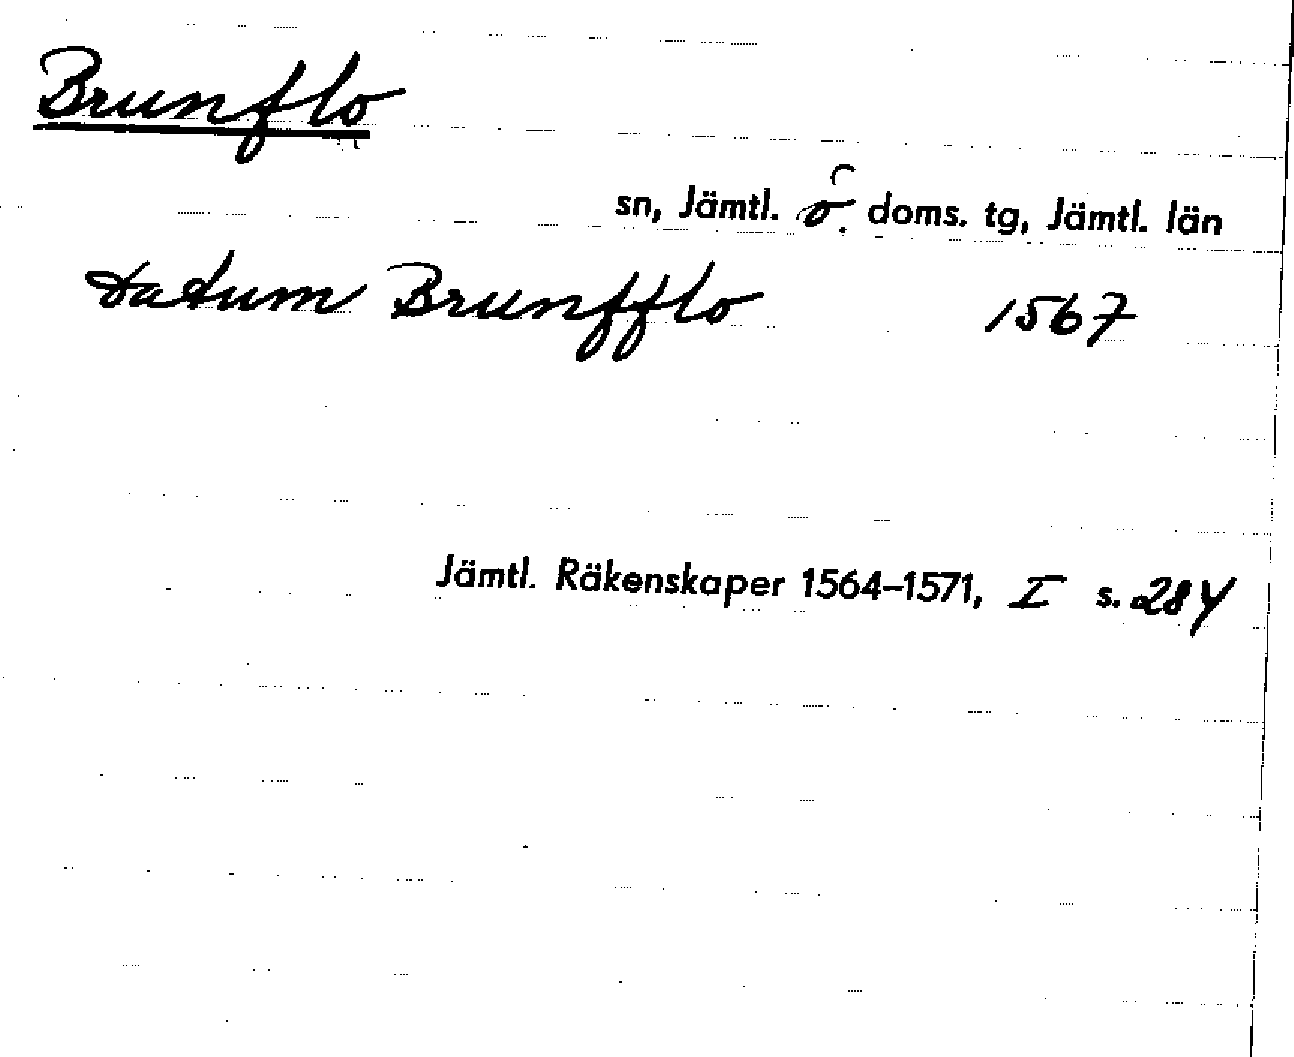 Brunflo
sn, Jämtl. ö. doms. tg, Jämtl. län
datum Brunfflo 1567
Jämtl. Räkenskaper 1564–1571, I s. 284